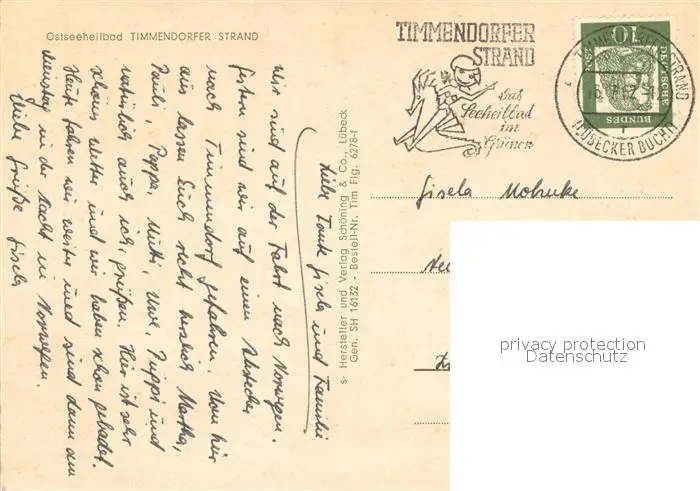 Ostseeheilbad TIMMENDORFER STRAND
TIMMENDORFER
STRAND
Das
Seeheilbad
im
Grünen
TIMMENDORFER STRAND
(LÜBECKER BUCHT)
10
DEUTSCHE
BUNDES
Liebe Tante Gisela und Familie
Wir sind auf der Fahrt nach Norwegen.
Gestern sind wir auf einen Abstecher
nach Timmendorf gefahren. Von hier
aus lassen Euch recht herzlich Martha,
Pauli, Pappa, Mutti, Uwe, Puppi und
natürlich auch ich, grüßen. Hier ist sehr
schönes Wetter und wir haben schon gebadet.
Heute fahren wir weiter und sind dann am
Dienstag in der Nacht in Norwegen.
Viele Grüße Gisela
s· Hersteller und Verlag Schöning & Co., Lübeck
Gen. SH 16132 - Bestell-Nr. Tim Flg. 6278-f
Gisela
privacy protection
Datenschutz